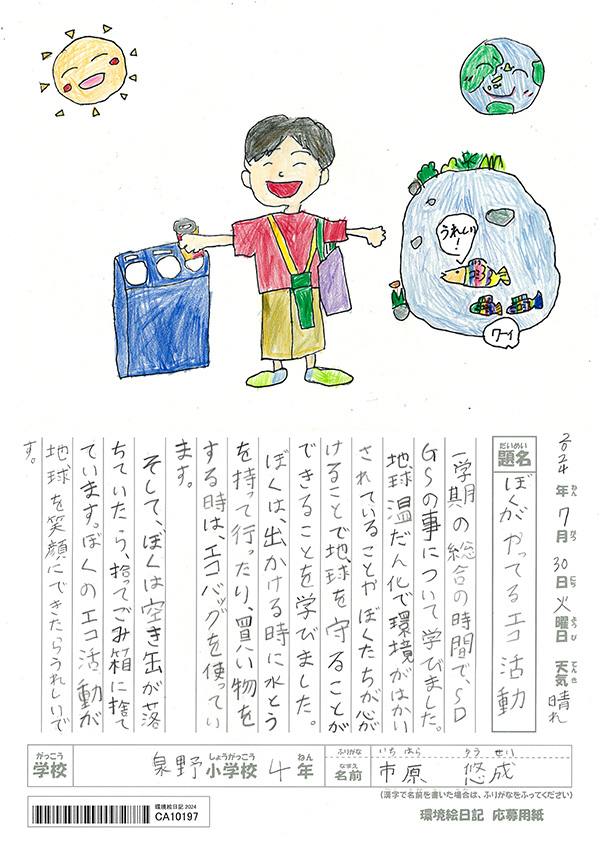 うれしい!
ワーイ
2024年ねん7月がつ30日にち火曜日ようび 天気てんき 晴れ
だいめい
題名
ぼくがやってるエコ活動
一学期の総合の時間で、SD
GSの事について学びました。
地球温だん化で環境がはかい
されていることやぼくたちが心が
けることで地球を守ることが
できることを学びました。
ぼくは、出かける時に水とう
を持って行ったり、買い物を
する時は、エコバッグを使ってい
ます。
そして、ぼくは空き缶が落
ちていたら、拾ってごみ箱に捨て
ています。ぼくのエコ活動が
地球を笑顔にできたらうれしいで
す。
がっこう しょうがっこう ねん
学校 泉野 小学校 4年
ふりがな いちはら ゆうせい
なまえ
名前 市原 悠成
(漢字で名前を書いた場合は、ふりがなをふってください)
環境絵日記 2024
CA10197
環境絵日記 応募用紙